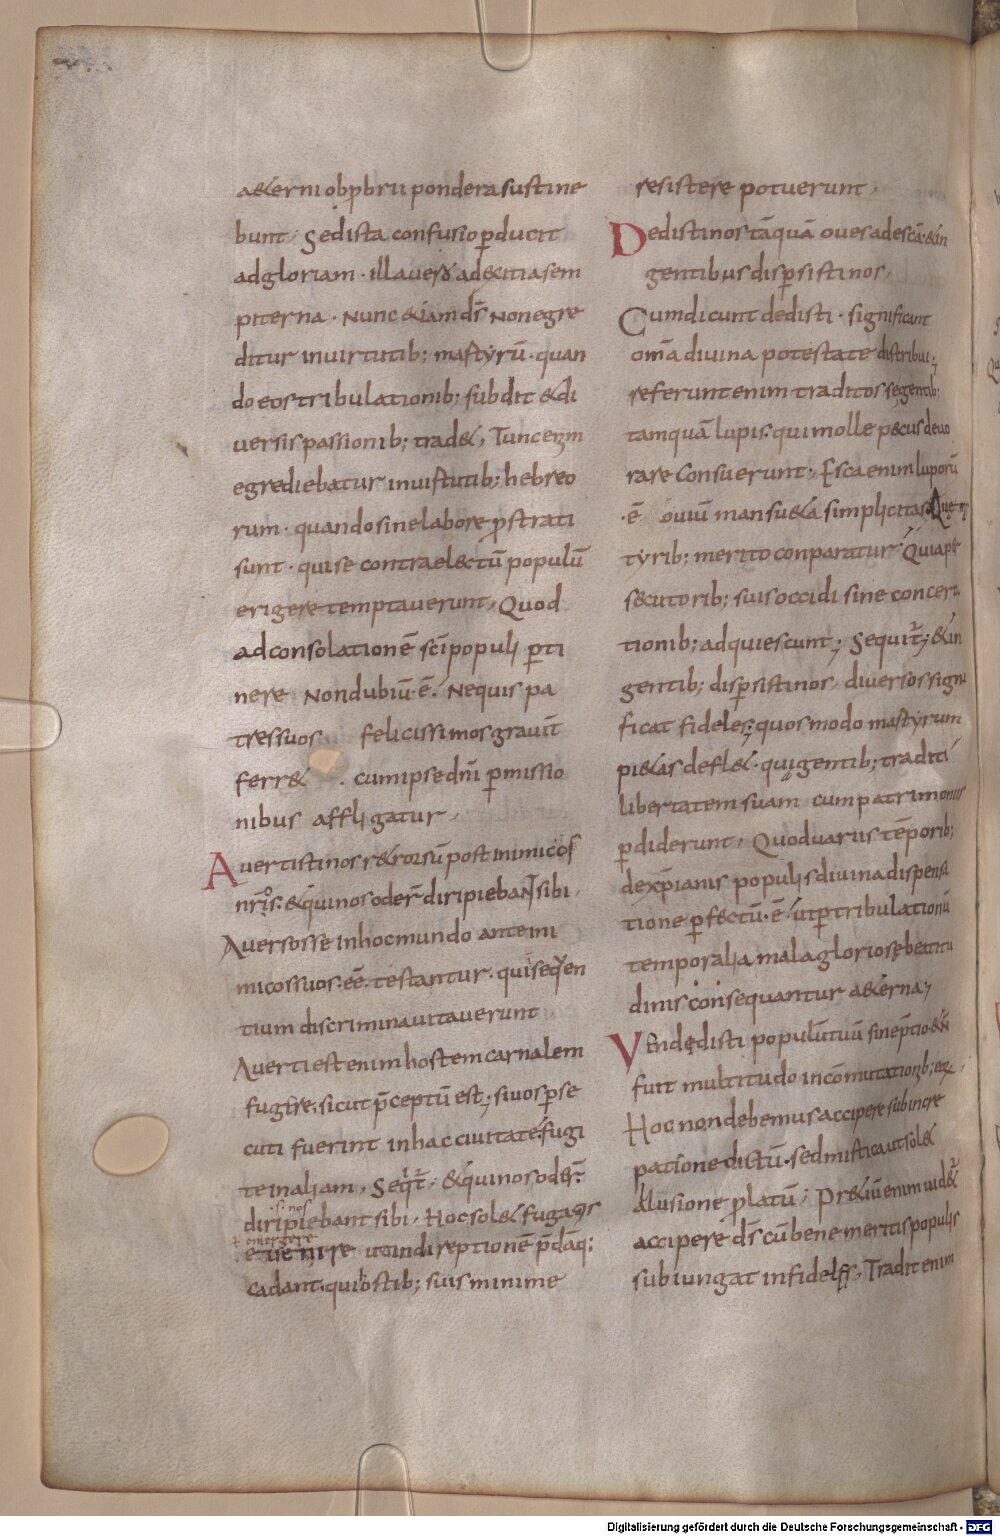 a&erni obpbrii pondera sustine
bunt. Sed ista confusio pducit
ad gloriam. illa vero ad exitia sem
piterna. Nunc &iam ds̄ non egre
ditur in virtutib; martyrū. quan
do eos tribulationib; subdit & di
versis passionib; trad&. Tunc enim
egrediebatur in virtutib; hebreo
rum. quando sine labore pstrati
sunt. qui se contra electū populū
erigere temptaverunt. Quod
ad consolationē sc̄i populi pti
nere non dubiū ē. Ne quis pa
tres suos felicissimos gravit̄
ferr& . cum ipse dn̄i pmissio
nibus affligatur.
Avertisti nos r&rorsū post inimicos
nr̄os. & qui nos oder̄ diripiebant sibi.
Aversos se in hoc mundo ante ini
micos suos. eē. testantur. qui seqen
tium discrimina vitaverunt
Averti est enim hostem carnalem
fugire. sicut p̄ceptū est; si vos pse
cuti fuerint in hac civitate. fugi
te in aliam. Seqt̄. & qui nos oder̄
diripiebant sibi. Hoc sol& fugacis
emergere
evenire ut in direptionē p̄daq;
cadant. qui hostib; suis minime
resistere potuerunt.
Dedisti nos tāquā oves adescā. & in
gentibus dispsisti nos.
Cum dicunt dedisti. significant
om̄a divina potestate distribui;
referunt enim traditos se gentib;
tamquā lupis. qui molle pecus devo
rare consuerunt. Esca enim luporū
ē oviū mansu&a simplicitas. Que mar
tyrib; merito conparatur. Quia pse
secutorib; suis occidi sine concerta
tionib; adquiescunt; Sequit̄; & in
gentib; dispsisti nos. diversos signi
ficat fideles; quos modo martyrum
pi&as defl&. qui gentib; traditi
libertatem suam cum patrimoniis
pdiderunt. Quod variis tēporib;
de xp̄ianis populis divina dispensa
tione pfectū. ē. ut p tribulationū
temporalia mala gloriose beatitu
dinis consequantur a&erna;
Vendedisti populū tuū sine p̄tio. & n̄
fuit multitudo in cōmutationib; eor̄.
Hoc non debemus accipere sub incre
patione dictū. sed mistica ut sol&
allusione platū; Pr&iū enim vid&ur
accipere ds̄ cū bene meritis populis
subiungat infideles. Tradit enim
Digitalisierung gefördert durch die Deutsche Forschungsgemeinschaft - DFG